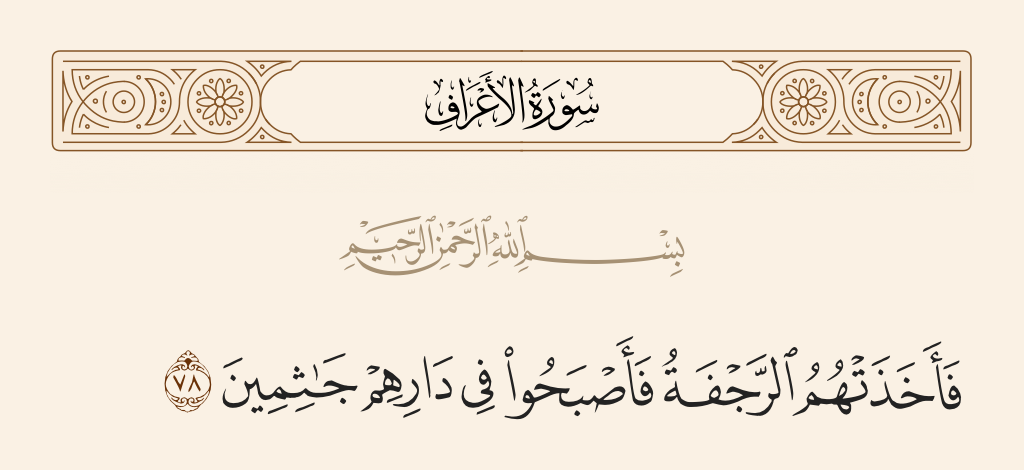 سُورَةُ الأَعْرَافِ
بِسْمِ ٱللَّهِ ٱلرَّحْمَٰنِ ٱلرَّحِيمِ
فَأَخَذَتْهُمُ ٱلرَّجْفَةُ فَأَصْبَحُوا۟ فِى دَارِهِمْ جَـٰثِمِينَ ٧٨